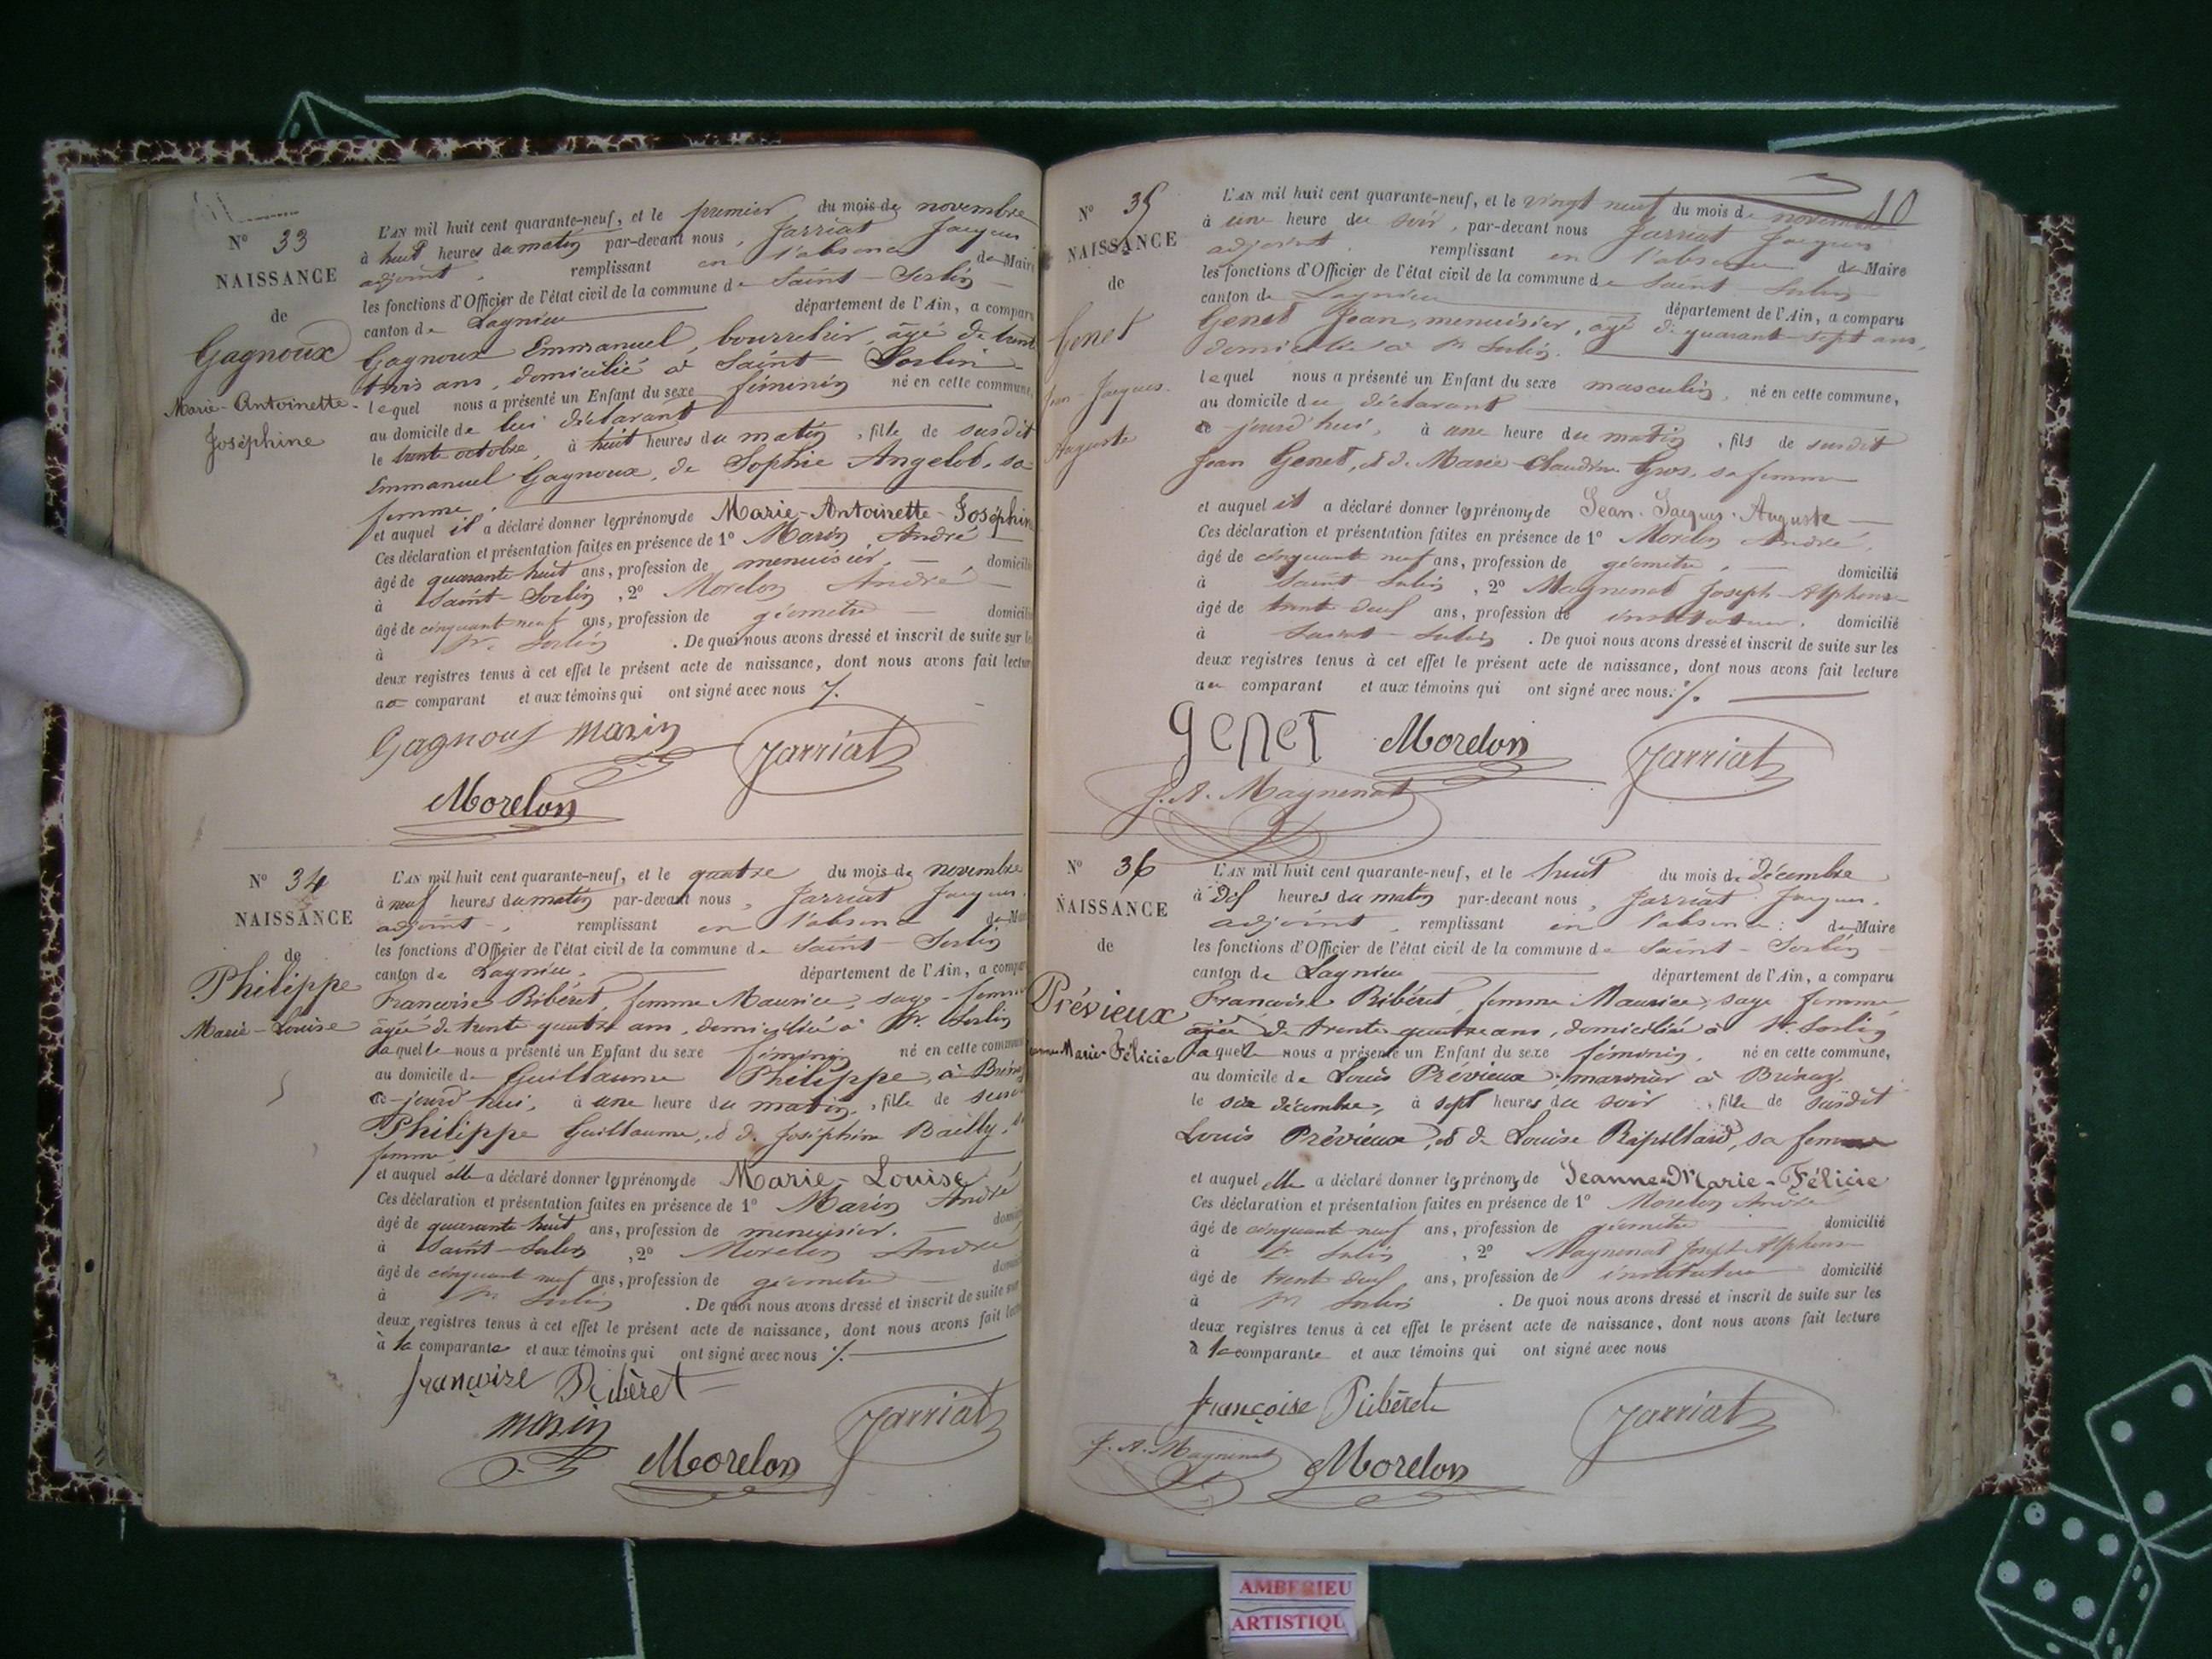 N° 33
NAISSANCE
de
Gagnoux
Marie-Antoinette-
Joséphine
L'AN mil huit cent quarante-neuf, et le premier du mois de novembre
à huit heures du matin par-devant nous, Jarriat Jacques
adjoint, remplissant en l'absence du Maire
les fonctions d'Officier de l'état civil de la commune de Saint-Sorlin
canton de Lagnieu département de l'Ain, a comparu
Gagnoux Emmanuel, bourrelier, âgé de trente
trois ans, domicilié à Saint-Sorlin
lequel nous a présenté un Enfant du sexe féminin né en cette commune,
au domicile de lui déclarant
le trente octobre, à huit heures du matin, fille de susdit
Emmanuel Gagnoux, de Sophie Angelot, sa
femme.
et auquel il a déclaré donner les prénoms de Marie-Antoinette-Joséphine
Ces déclaration et présentation faites en présence de 1° Marin André
âgé de quarante-huit ans, profession de menuisier, domicilié
à Saint-Sorlin, 2° Morelon André
âgé de cinquante neuf ans, profession de géomètre domicilié
à St. Sorlin. De quoi nous avons dressé et inscrit de suite sur les
deux registres tenus à cet effet le présent acte de naissance, dont nous avons fait lecture
au comparant et aux témoins qui ont signé avec nous
Gagnoux Marin Jarriat
Morelon
N° 34
NAISSANCE
de
Philippe
Marie-Louise
L'AN mil huit cent quarante-neuf, et le quatre du mois de novembre
à neuf heures du matin par-devant nous, Jarriat Jacques,
adjoint, remplissant en l'absence du Maire
les fonctions d'Officier de l'état civil de la commune de Saint-Sorlin
canton de Lagnieu, département de l'Ain, a comparu
Françoise Ribéret, femme Maurice, sage-femme
âgée de trente quatre ans, domiciliée à St. Sorlin
laquelle nous a présenté un Enfant du sexe féminin né en cette commune
au domicile de Guillaume Philippe, à
ce-jourd'hui, à une heure du matin, fille de susdit
Philippe Guillaume, et de Joséphine Bailly, sa
femme.
et auquel elle a déclaré donner les prénoms de Marie-Louise
Ces déclaration et présentation faites en présence de 1° Marin André
âgé de quarante-huit ans, profession de menuisier. domicilié
à Saint-Sorlin, 2° Morelon André
âgé de cinquante neuf ans, profession de géomètre domicilié
à St Sorlin. De quoi nous avons dressé et inscrit de suite sur
deux registres tenus à cet effet le présent acte de naissance, dont nous avons fait lecture
à la comparante et aux témoins qui ont signé avec nous
françoise Ribèret
Marin
Morelon Jarriat
10
N° 35
NAISSANCE
de
Genet
Jean-Jacques-
Auguste
L'AN mil huit cent quarante-neuf, et le vingt neuf du mois de novembre
à une heure du soir, par-devant nous Jarriat Jacques
adjoint, remplissant en l'absence du Maire
les fonctions d'Officier de l'état civil de la commune de Saint-Sorlin
canton de Lagnieu département de l'Ain, a comparu
Genet Jean, menuisier, âgé de quarante-sept ans,
domicilié à St Sorlin.
lequel nous a présenté un Enfant du sexe masculin, né en cette commune,
au domicile du déclarant
ce-jourd'hui, à une heure du matin, fils de susdit
Jean Genet, et de Marie-Claudine Gros, sa femme
et auquel il a déclaré donner les prénoms de Jean-Jacques-Auguste
Ces déclaration et présentation faites en présence de 1° Morelon André,
âgé de cinquante neuf ans, profession de géomètre, domicilié
à Saint-Sorlin, 2° Magnenat Joseph-Alphonse
âgé de trente-deux ans, profession de instituteur, domicilié
à Saint-Sorlin. De quoi nous avons dressé et inscrit de suite sur les
deux registres tenus à cet effet le présent acte de naissance, dont nous avons fait lecture
au comparant et aux témoins qui ont signé avec nous.
Genet Morelon Jarriat
J. A. Magnenat
N° 36
NAISSANCE
de
Prévieux
Jeanne-Marie-Félicie
L'AN mil huit cent quarante-neuf, et le huit du mois de décembre
à dix heures du matin par-devant nous, Jarriat Jacques,
adjoint, remplissant en l'absence du Maire
les fonctions d'Officier de l'état civil de la commune de Saint-Sorlin
canton de Lagnieu département de l'Ain, a comparu
Françoise Ribéret, femme Maurice, sage femme
âgée de trente-quatre ans, domiciliée à St. Sorlin
laquelle nous a présenté un Enfant du sexe féminin, né en cette commune,
au domicile de Louis Prévieux, marinier à Brinay,
le six décembre, à sept heures du soir, fille de susdit
Louis Prévieux, et de Louise Ripillard, sa femme
et auquel elle a déclaré donner les prénoms de Jeanne-Marie-Félicie
Ces déclaration et présentation faites en présence de 1° Morelon André
âgé de cinquante-neuf ans, profession de géomètre domicilié
à St Sorlin, 2° Magnenat Joseph-Alphonse
âgé de trente-deux ans, profession de instituteur domicilié
à St Sorlin. De quoi nous avons dressé et inscrit de suite sur les
deux registres tenus à cet effet le présent acte de naissance, dont nous avons fait lecture
à la comparante et aux témoins qui ont signé avec nous
françoise Ribèret Jarriat
J. A. Magnenat Morelon
AMBERIEU
ARTISTIQU